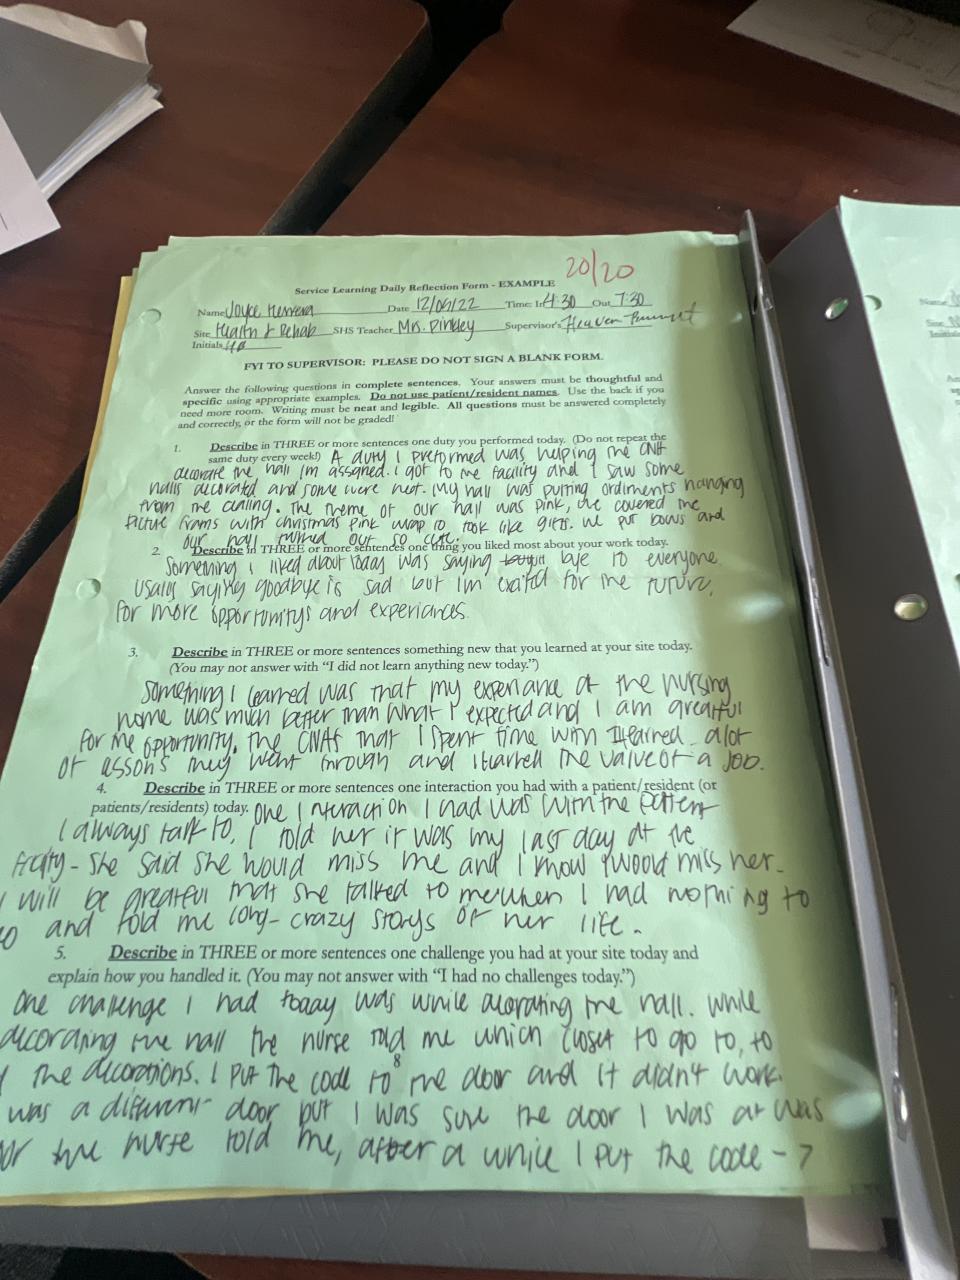 20/20
Service Learning Daily Reflection Form - EXAMPLE
Name Joyce Herrera Date 12/06/22 Time: In 4:30 Out 7:30
Site Health & Rehab SHS Teacher Mrs. Pinkley Supervisor's Heaven
Initials HB
FYI TO SUPERVISOR: PLEASE DO NOT SIGN A BLANK FORM.
Answer the following questions in complete sentences. Your answers must be thoughtful and
specific using appropriate examples. Do not use patient/resident names. Use the back if you
need more room. Writing must be neat and legible. All questions must be answered completely
and correctly, or the form will not be graded!
1. Describe in THREE or more sentences one duty you performed today. (Do not repeat the
same duty every week!) A duty I preformed was helping the CNA
decorate the hall Im assigned. I got to the facility and I saw some
halls decorated and some were not. My hall was putting ordiments hanging
from the cealing. The theme of our hall was pink, we covered the
picture frams with christmas pink wrap to look like gifts. We put bows and
our hall turned out so cute.
2. Describe in THREE or more sentences one thing you liked most about your work today.
Something I liked about today was saying bye to everyone
Usally saying goodbye is sad but Im exited for the future,
for more opportunitys and experiances.
3. Describe in THREE or more sentences something new that you learned at your site today.
(You may not answer with “I did not learn anything new today.”)
Something I learned was that my experiance at the nursing
home was much better than what I expected and I am greatful
for the opportunity. The CNAs that I spent time with I learned alot
of assons they went through and I learned the value of a job.
4. Describe in THREE or more sentences one interaction you had with a patient/resident (or
patients/residents) today. One interaction I had was with the patient
I always talk to, I told her it was my last day at the
She said she would miss me and I know I would miss her.
I will be greatful that she talked to me when I had nothing to
and told me long-crazy storys of her life.
5. Describe in THREE or more sentences one challenge you had at your site today and
explain how you handled it. (You may not answer with “I had no challenges today.”)
One challenge I had today was while decorating the hall. While
decorating the hall the nurse told me which closet to go to, to
the decorations. I put the code to the door and it didn't work.
was a different door but I was sure the door I was at was
the nurse told me, after a while I put the code - 7